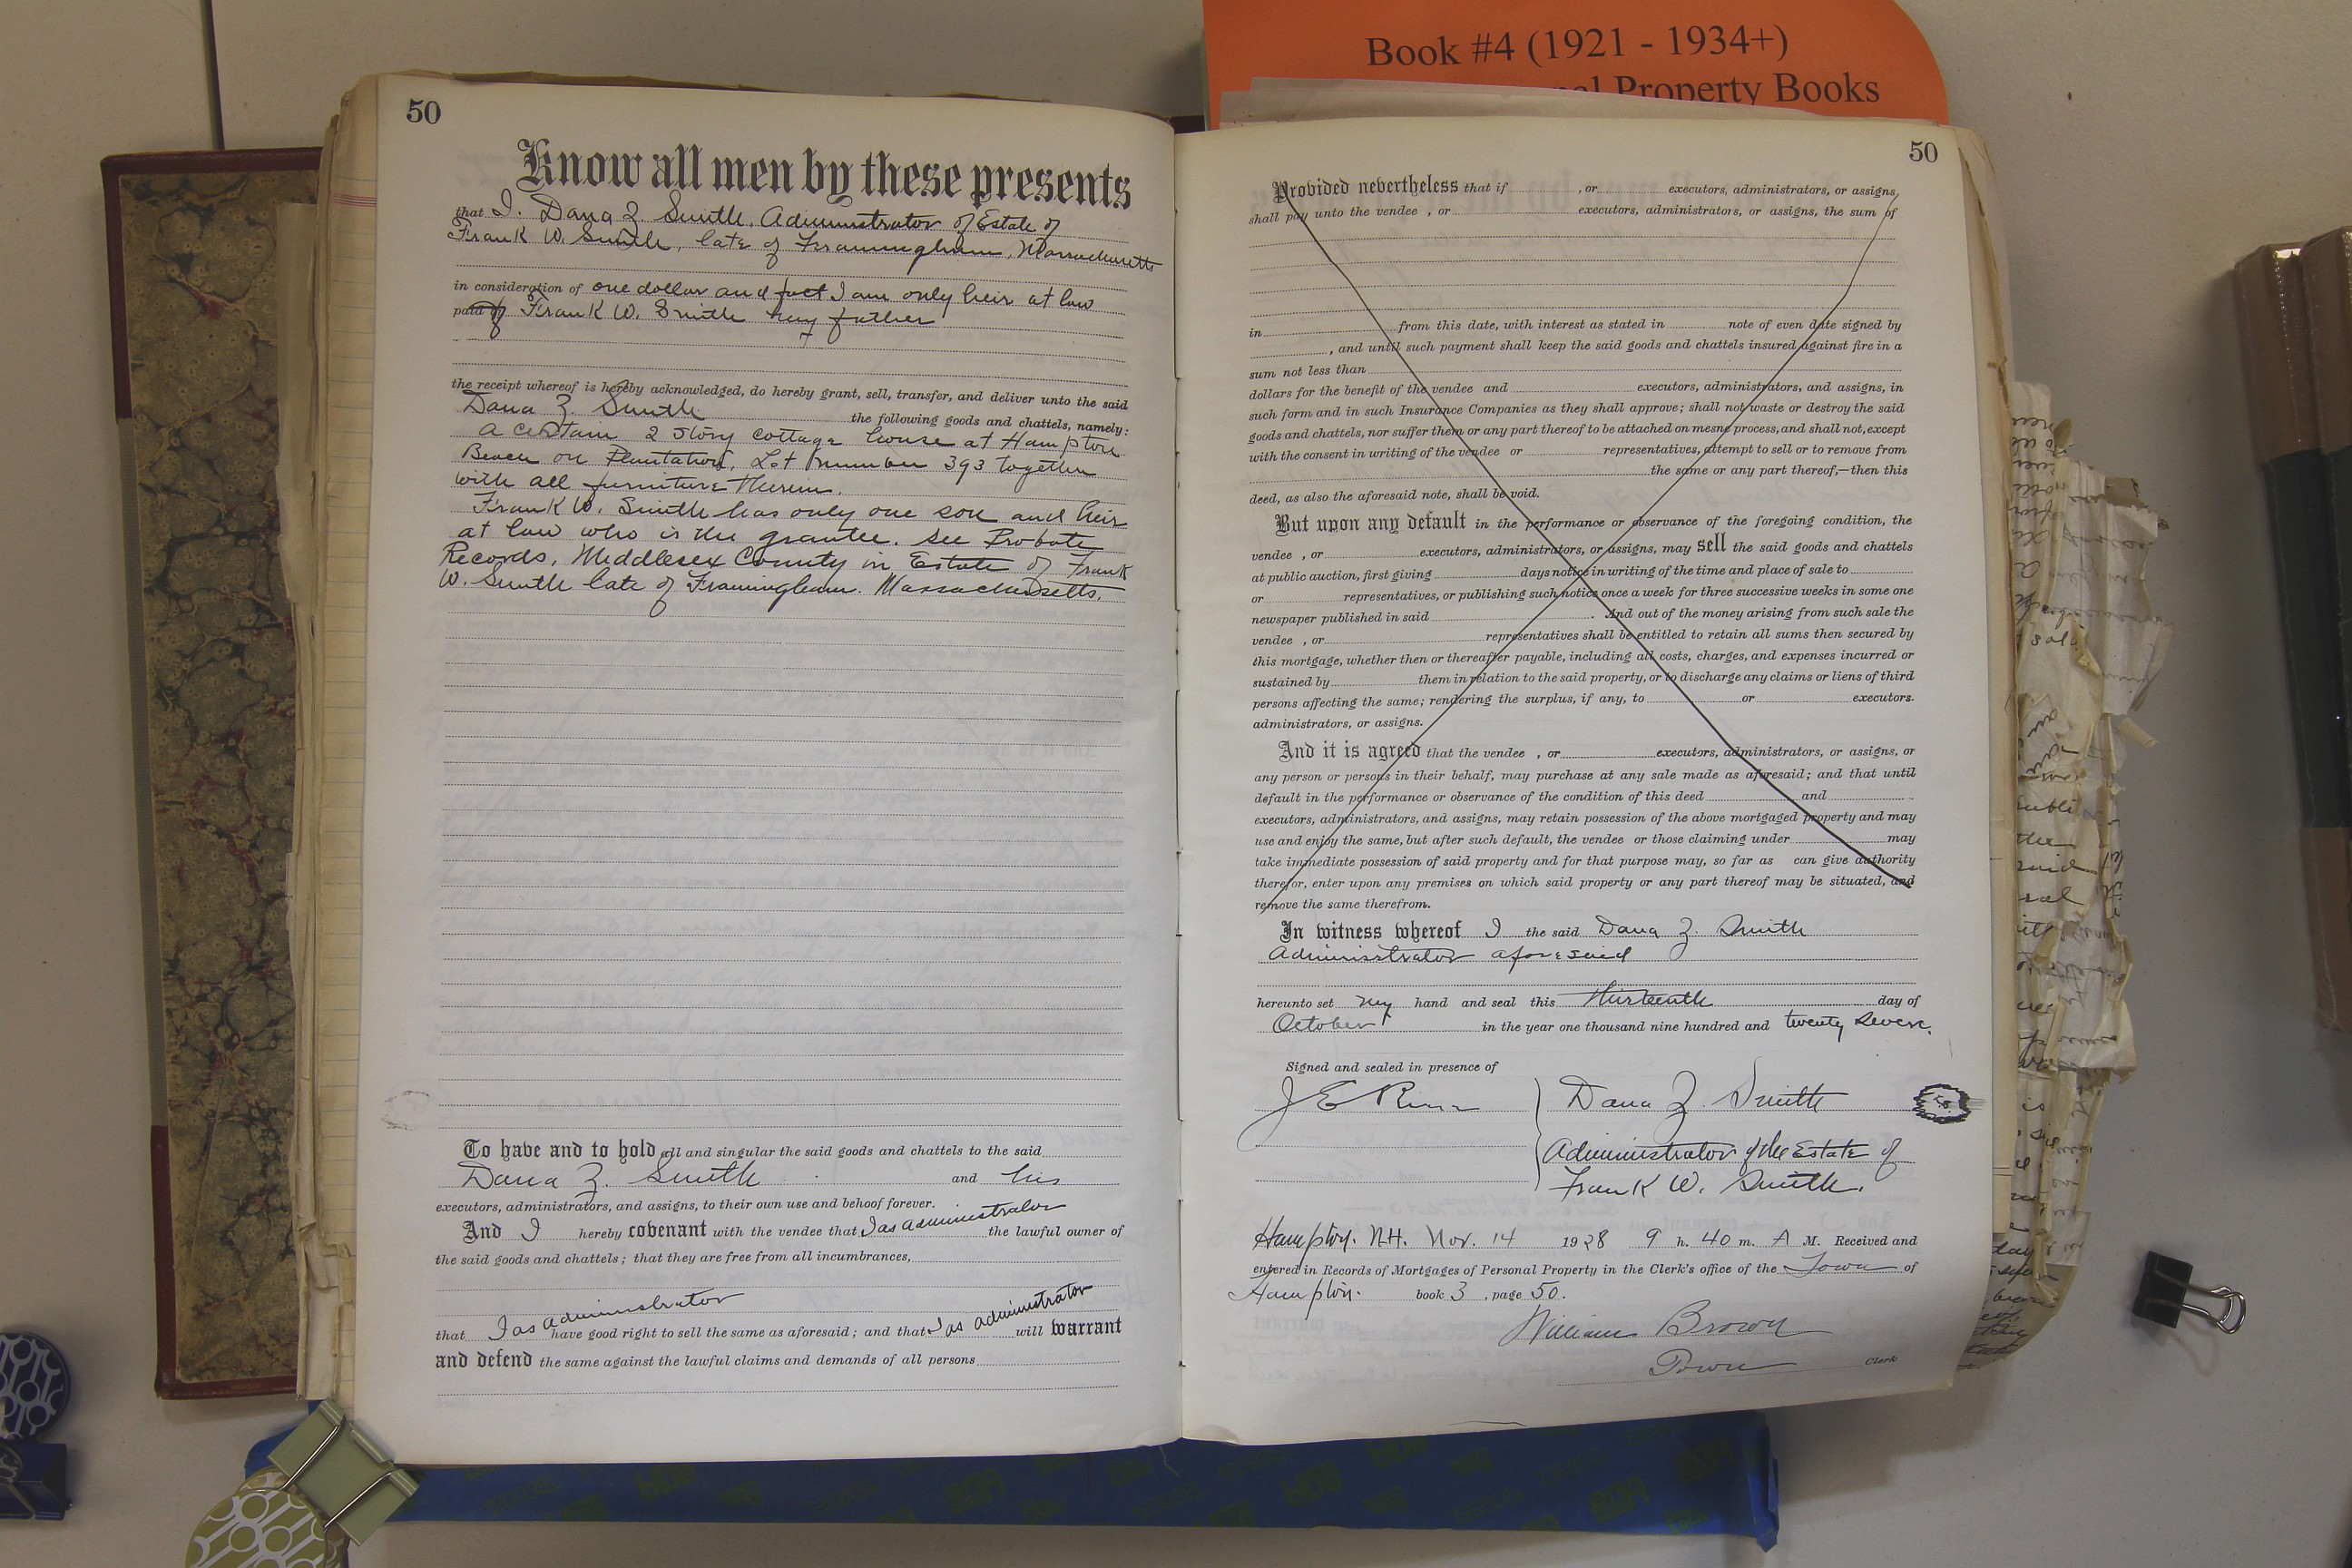 Book #4 (1921 - 1934+)
Property Books
50
Know all men by these presents
that I. Dana Z. Smith, Administrator of Estate of
Frank W. Smith, late of Framingham, Massachusetts
in consideration of one dollar and fact I am only heir at law
paid of Frank W. Smith my father
the receipt whereof is hereby acknowledged, do hereby grant, sell, transfer, and deliver unto the said
Dana Z. Smith the following goods and chattels, namely:
a certain 2 story cottage house at Hampton
Beach on Plantation, Lot number 393 together
with all furniture therein.
Frank W. Smith has only one son and heir
at law who is the grantee. See Probate
Records, Middlesex County in Estate of Frank
W. Smith late of Framingham. Massachusetts.
To have and to hold all and singular the said goods and chattels to the said
Dana Z. Smith and his
executors, administrators, and assigns, to their own use and behoof forever.
And I hereby covenant with the vendee that I as administrator the lawful owner of
the said goods and chattels; that they are free from all incumbrances,
that I as administrator have good right to sell the same as aforesaid; and that I as administrator will warrant
and defend the same against the lawful claims and demands of all persons
50
Provided nevertheless that if , or executors, administrators, or assigns,
shall pay unto the vendee , or executors, administrators, or assigns, the sum of
in from this date, with interest as stated in note of even date signed by
, and until such payment shall keep the said goods and chattels insured against fire in a
sum not less than
dollars for the benefit of the vendee and executors, administrators, and assigns, in
such form and in such Insurance Companies as they shall approve; shall not waste or destroy the said
goods and chattels, nor suffer them or any part thereof to be attached on mesne process, and shall not, except
with the consent in writing of the vendee or representatives, attempt to sell or to remove from
the same or any part thereof,—then this
deed, as also the aforesaid note, shall be void.
But upon any default in the performance or observance of the foregoing condition, the
vendee , or executors, administrators, or assigns, may sell the said goods and chattels
at public auction, first giving days notice in writing of the time and place of sale to
or representatives, or publishing such notice once a week for three successive weeks in some one
newspaper published in said . And out of the money arising from such sale the
vendee , or representatives shall be entitled to retain all sums then secured by
this mortgage, whether then or thereafter payable, including all costs, charges, and expenses incurred or
sustained by them in relation to the said property, or to discharge any claims or liens of third
persons affecting the same; rendering the surplus, if any, to or executors.
administrators, or assigns.
And it is agreed that the vendee , or executors, administrators, or assigns, or
any person or persons in their behalf, may purchase at any sale made as aforesaid; and that until
default in the performance or observance of the condition of this deed and
executors, administrators, and assigns, may retain possession of the above mortgaged property and may
use and enjoy the same, but after such default, the vendee or those claiming under may
take immediate possession of said property and for that purpose may, so far as can give authority
therefor, enter upon any premises on which said property or any part thereof may be situated, and
remove the same therefrom.
In witness whereof I the said Dana Z. Smith
Administrator aforesaid
hereunto set my hand and seal this thirteenth day of
October in the year one thousand nine hundred and twenty seven.
Signed and sealed in presence of
J E Dana Z. Smith
Administrator of the Estate of
Frank W. Smith.
Hampton. N.H. Nov. 14 1928 9 h. 40 m. A M. Received and
entered in Records of Mortgages of Personal Property in the Clerk's office of the Town of
Hampton. book 3 , page 50.
William Brown
Town Clerk